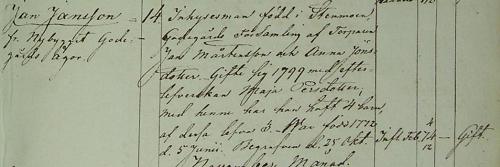 Jan Jansson
fr. Nybygget Gode-
gårds Ägor.
14. Inhysesman född i Stenmoen,
Godegårds Församling af Torparen
Jan Mårtensson och Anna Jons-
dotter. Gifte sig 1799 med efter-
lefverskan Maja Persdotter,
med henne har han haft 4 barn,
af dessa lefva 3. War född 1772
d. 5 Junii. Begrofven d. 25 Okt.
Inft. Feb. 74 4/12 — Gift.
November Månad.